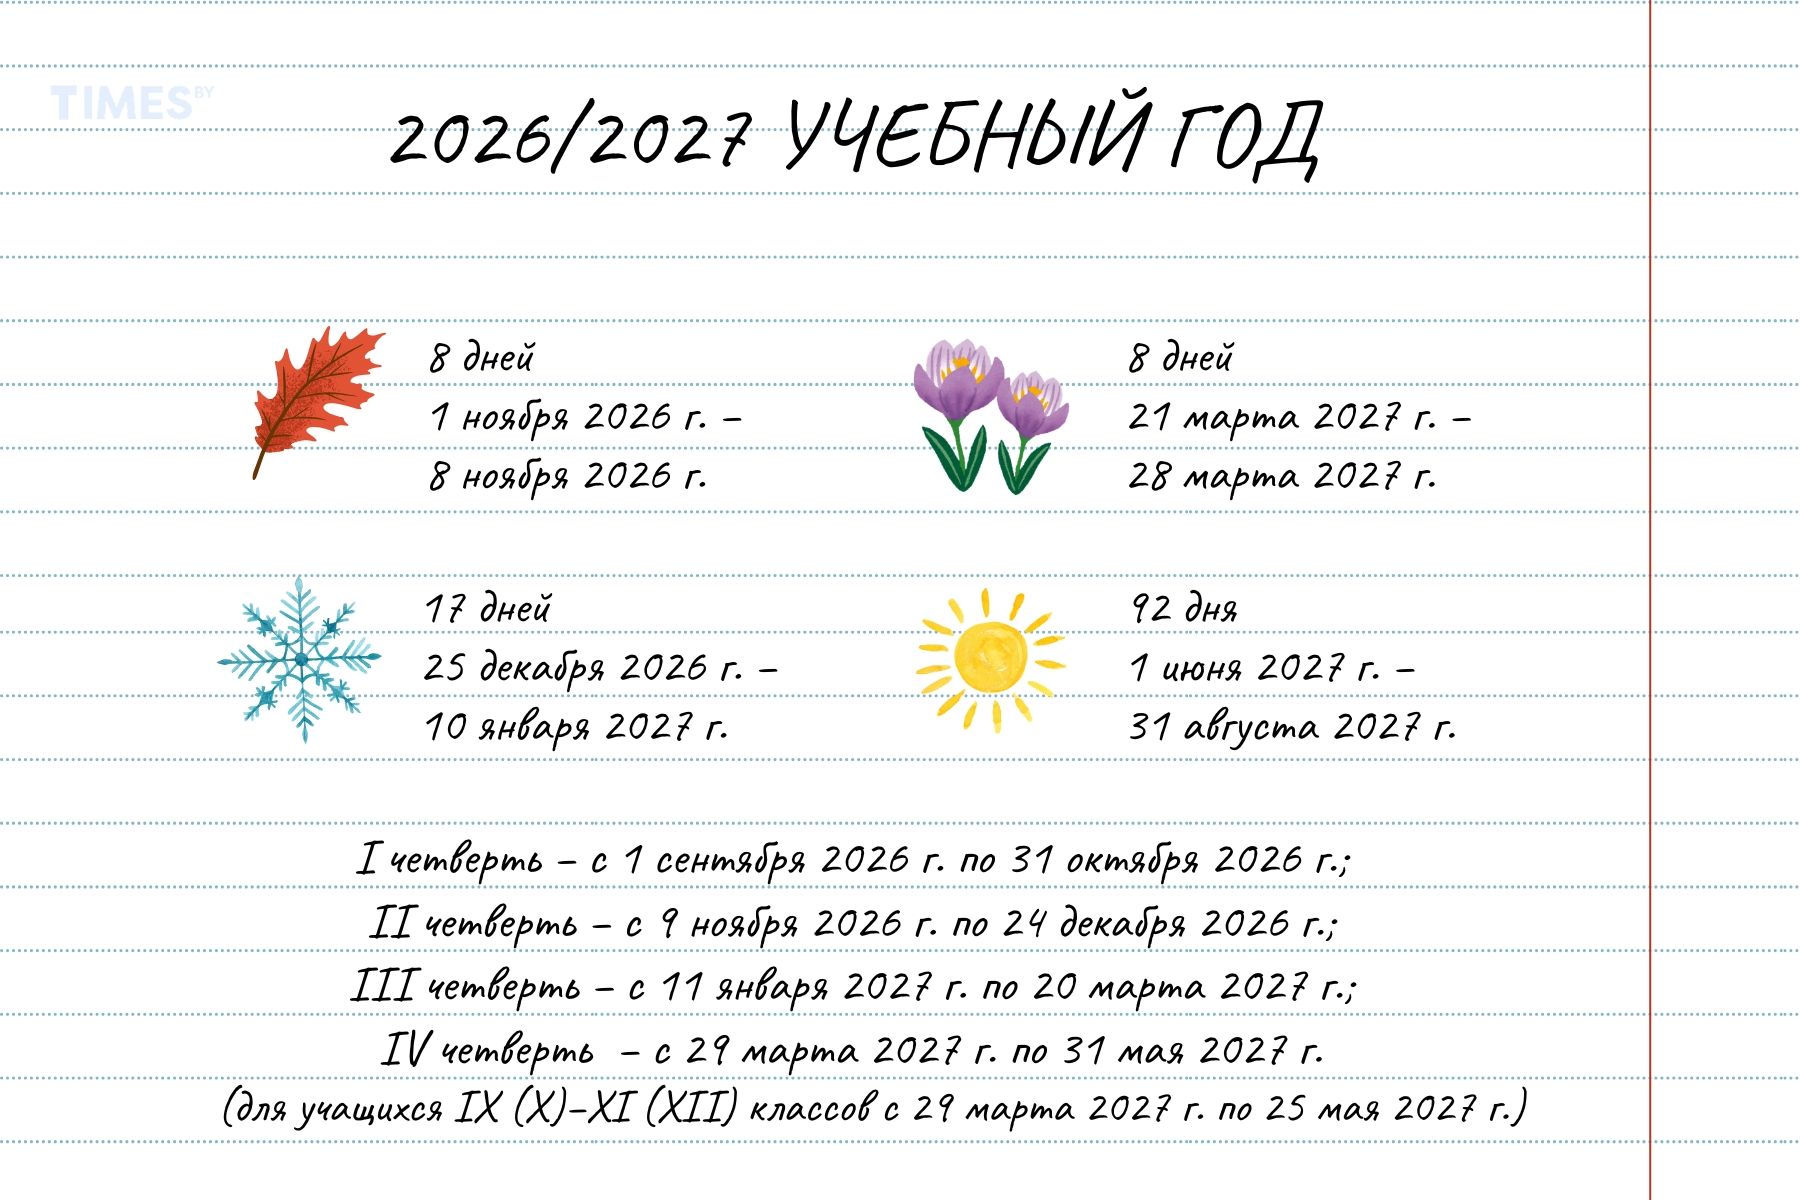 TIMES BY
2026/2027 УЧЕБНЫЙ ГОД
8 дней
1 ноября 2026 г. –
8 ноября 2026 г.
8 дней
21 марта 2027 г. –
28 марта 2027 г.
17 дней
25 декабря 2026 г. –
10 января 2027 г.
92 дня
1 июня 2027 г. –
31 августа 2027 г.
I четверть – с 1 сентября 2026 г. по 31 октября 2026 г.;
II четверть – с 9 ноября 2026 г. по 24 декабря 2026 г.;
III четверть – с 11 января 2027 г. по 20 марта 2027 г.;
IV четверть – с 29 марта 2027 г. по 31 мая 2027 г.
(для учащихся IX (X)–XI (XII) классов с 29 марта 2027 г. по 25 мая 2027 г.)